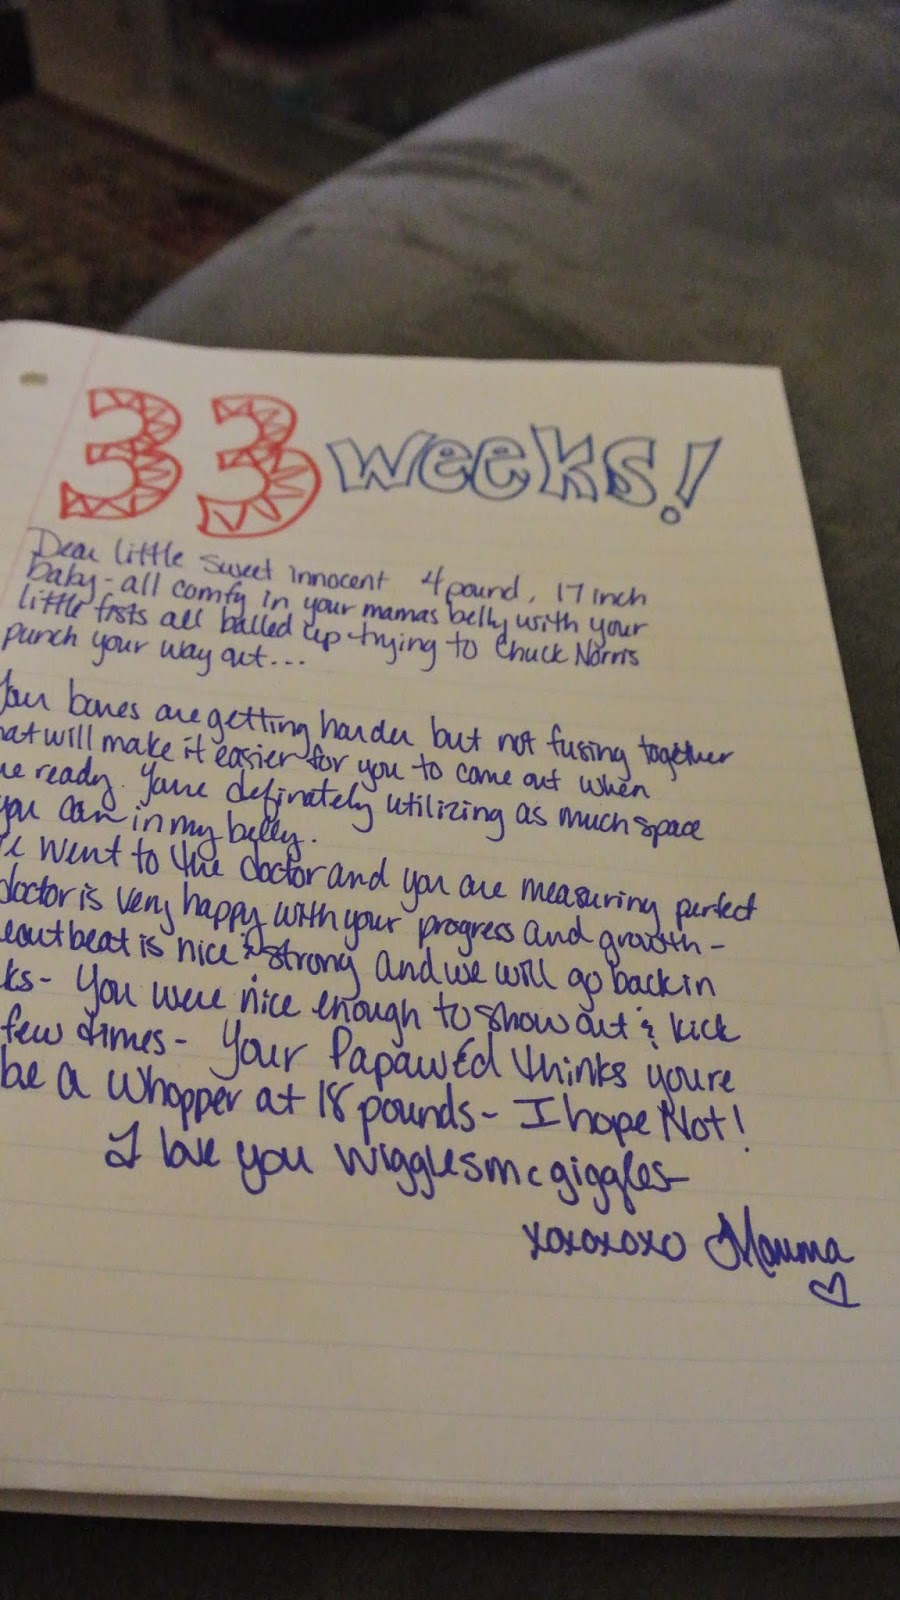 33 weeks!
Dear little sweet innocent 4 pound, 17 inch
baby- all comfy in your mamas belly with your
little fists all balled up trying to Chuck Norris
punch your way out...
your bones are getting harder but not fusing together
hat will make it easier for you to come out when
re ready. Youre definately utilizing as much space
you can in my belly.
e went to the doctor and you are measuring perfect
doctor is very happy with your progress and growth-
eartbeat is nice & strong and we will go back in
ks- You were nice enough to show out & kick
few times- Your Papaw Ed thinks youre
be a whopper at 18 pounds- I hope Not!
I love you wigglesmcgiggles-
xoxoxoxo Mamma